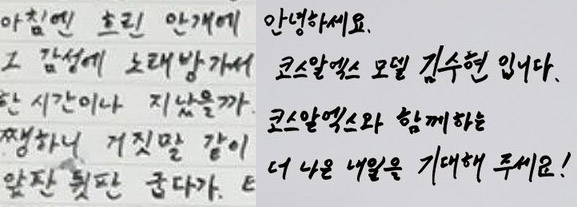 아침엔 흐린 안개에
그 감성에 노래방가서
한 시간이나 지났을까.
쨍하니 거짓말 같이
앞판 뒷판 굽다가.
안녕하세요.
코스알엑스 모델 김수현 입니다.
코스알엑스와 함께하는
더 나은 내일을 기대해 주세요!